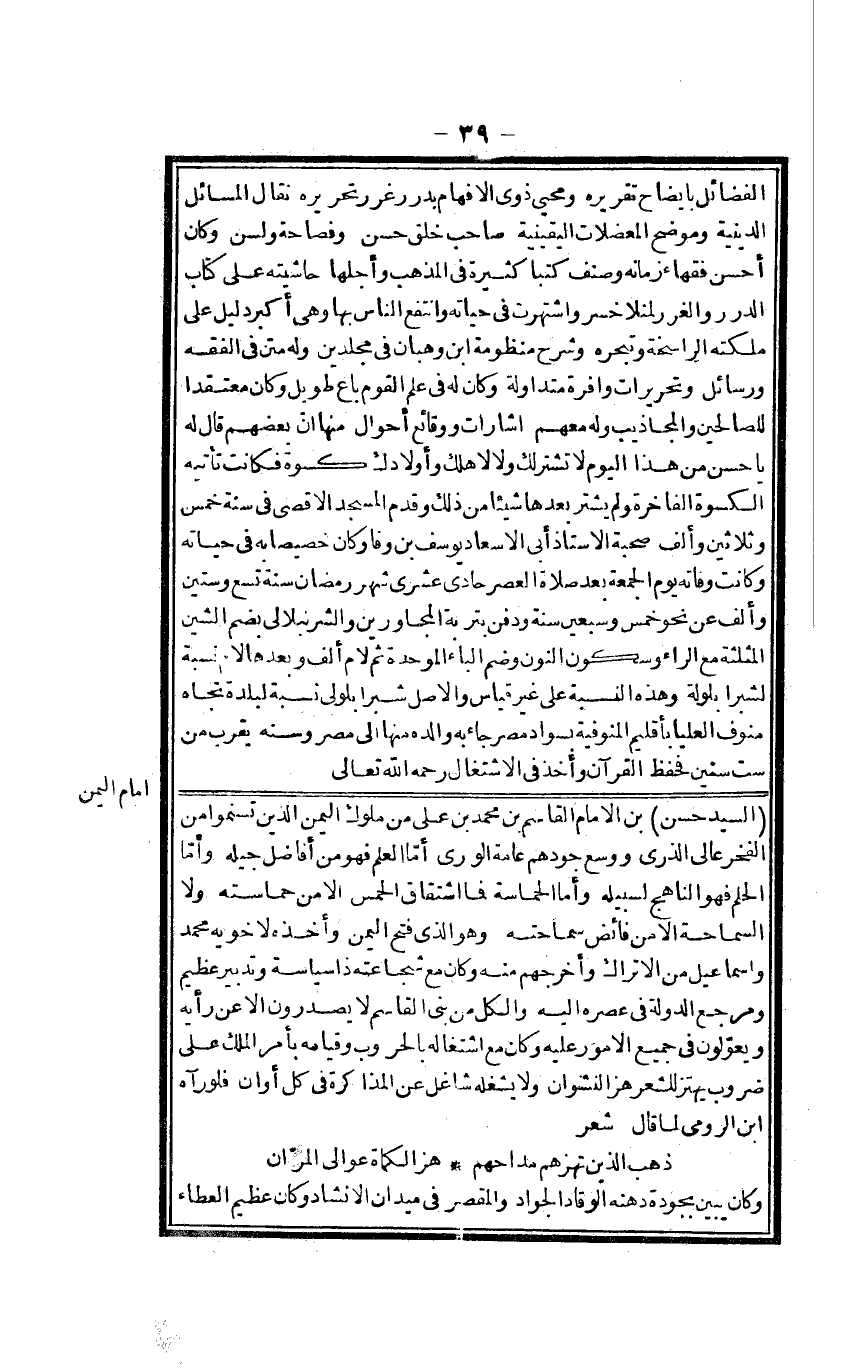 - ٣٩ -
الفضائل بايضاح تقريره ومحيي ذوى الافهام بدرر غرر تحريره نقال المسائل
الدينية وموضح المعضلات اليقينية صاحب خلق حسن وفصاحة ولسن وكان
أحسن فقهاء زمانه وصنف كتبا كثيرة فى المذهب وأجلها حاشيته على كتاب
الدرر والغرر لمنلا خسر واشتهرت فى حياته وانتفع الناس بها وهى أكبر دليل على
ملكته الراسخة وتبحره وشرح منظومة ابن وهبان فى مجلدين وله متن فى الفقه
ورسائل وتحريرات وافرة متداولة وكان له فى علم القوم باع طويل وكان معتقدا
للصالحين والمجاذيب وله معهم اشارات ووقائع أحوال منها انّ بعضهم قال له
يا حسن من هذا اليوم لا تشتر لك ولا لاهلك وأولادك كسوة فكانت تأتيه
الكسوة الفاخرة ولم يشتر بعدها شيئا من ذلك وقدم المسجد الاقصى فى سنة خمس
وثلاثين وألف صحبة الاستاذ أبى الاسعاد يوسف بن وفا وكان خصيصا به فى حياته
وكانت وفاته يوم الجمعة بعد صلاة العصر حادى عشرى شهر رمضان سنة تسع وستين
وألف عن نحو خمس وسبعين سنة ودفن بتربة المجاورين والشرنبلالى بضم الشين
المثلثة مع الراء وسكون النون وضم الباء الموحدة ثم لام ألف وبعدها لام نسبة
لشبرا بلولة وهذه النسبة على غير قياس والاصل شبرا بلولى نسبة لبلدة تجاه
منوف العليا بأقليم المنوفية بسواد مصر جاء به والده منها الى مصر وسنه يقرب من
ست سنين فحفظ القرآن وأخذ فى الاشتغال رحمه الله تعالى
امام اليمن
(السيد حسن) بن الامام القاسم بن محمد بن على من ملوك اليمن الذين تسنموا من
الفخر عالى الذرى ووسع جودهم عامة الورى أمّا العلم فهو من أفاضل جيله وأمّا
الحلم فهو الناهج لسبيله وأما الحماسة فما اشتقاق الخمس الا من حماسته ولا
السماحة الا من فائض سماحته وهو الذى فتح اليمن وأخذه لاخويه محمد
واسماعيل من الاتراك وأخرجهم منه وكان مع شجاعته ذا سياسة وتدبير عظيم
ومرجع الدولة فى عصره اليه والكل من بنى القاسم لا يصدرون الا عن رأيه
ويعوّلون فى جميع الامور عليه وكان مع اشتغاله بالحروب وقيامه بأمر الملك على
ضروب يهتز للشعر هز النشوان ولا يشغله شاغل عن المذاكرة فى كل أوان فلو رآه
ابن الرومى لما قال شعر
ذهب الذين تهزهم مداحهم * هز الكماة عوالى المرّان
وكان يبين بجودة ذهنه الوقاد الجواد والمقصر فى ميدان الانشاد وكان عظيم العطاء